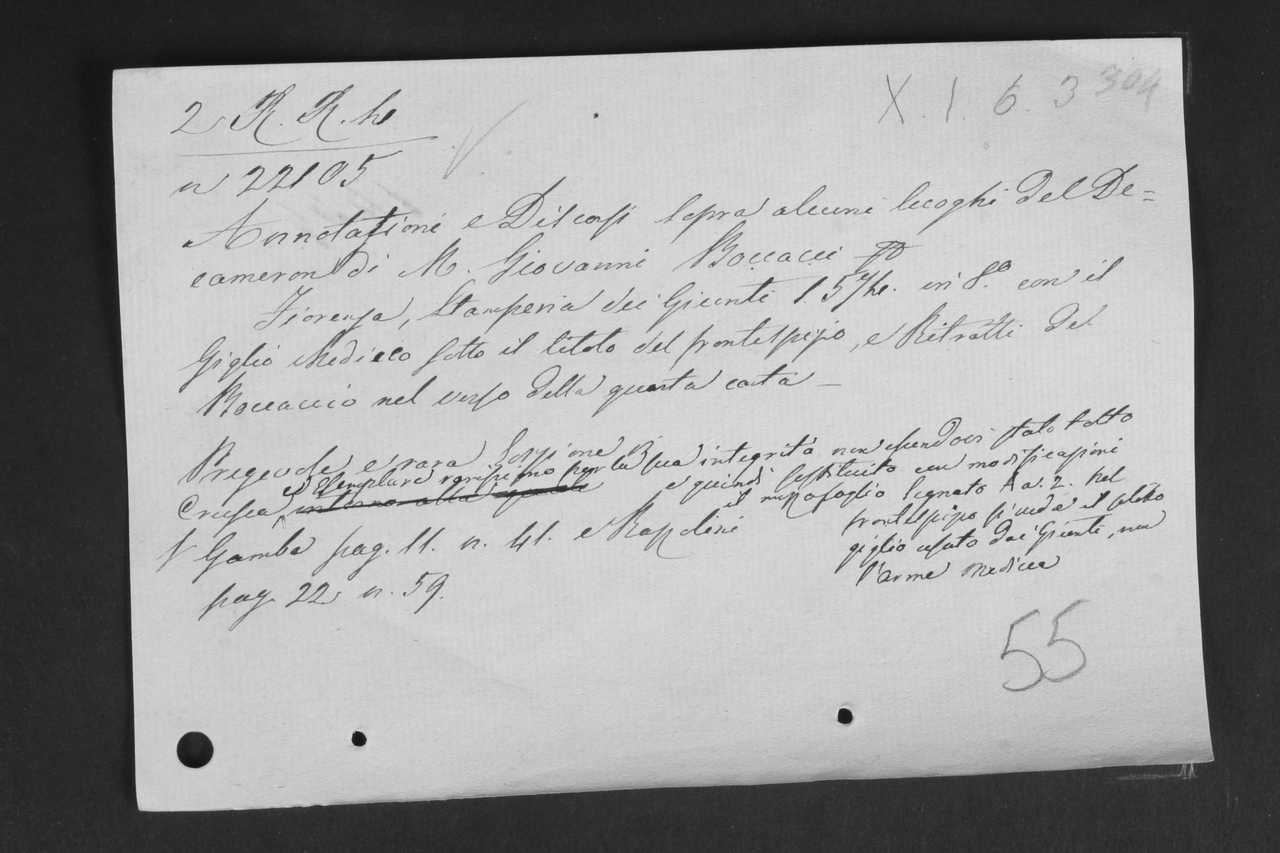 X. 1. 6. 3 304
2 R. R. h
n 22105
Annotazioni e Discorsi sopra alcuni luoghi del De=
cameron di M. Giovanni Boccacci
Fiorenza, Stamperia dei Giunti 157h. in 8.º con il
Giglio Mediceo sotto il titolo del frontespizio, e Ritratti del
Boccaccio nel verso della quarta carta —
Pregevole e rara
Crusca ed esemplare rarissimo per la sua integrità non essendovi stato tolto
e quindi sostituito con modificazioni
il mezzofoglio segnato Aa. 2. Nel
frontespizio si vede il solito
giglio usato dai Giunti, non
l'arme Medicea
V Gamba pag. 11. n. 41. e Razzolini
pag 22 n. 59.
55